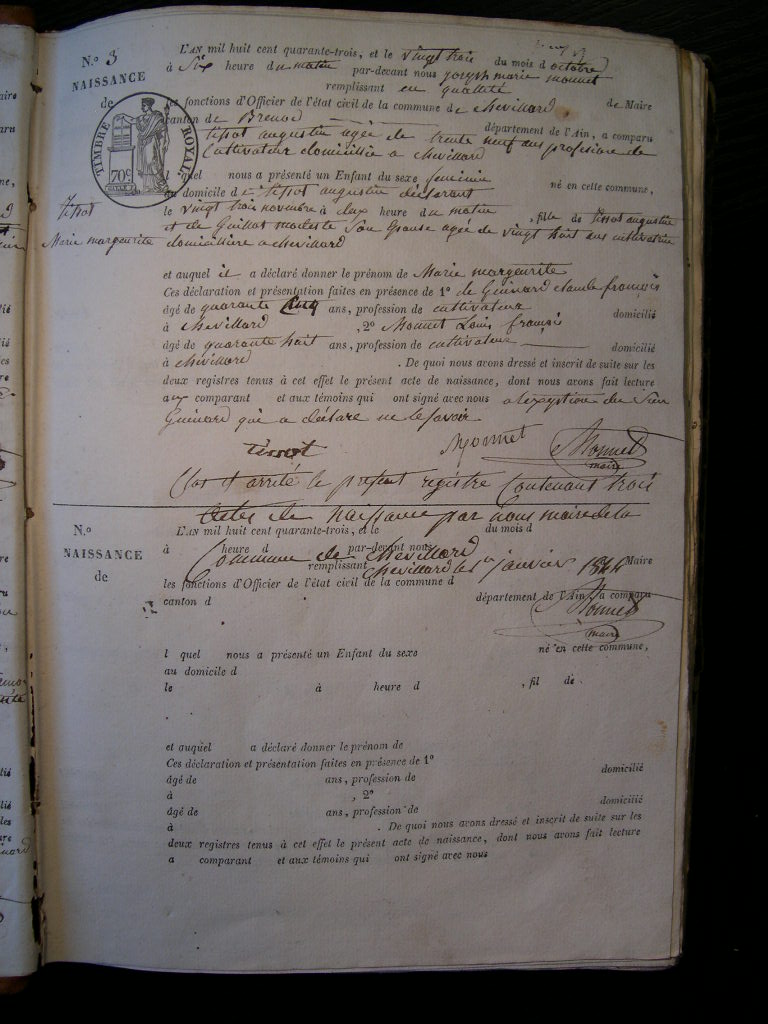 N.º 3
NAISSANCE
de
TIMBRE ROYAL
70c
tissot
Marie margeurite
L'AN mil huit cent quarante-trois, et le vingt trois du mois d octobre
à Six heure du matin par-devant nous joseph marie monnet
remplissant en qualité
les fonctions d'Officier de l'état civil de la commune de chevillard de Maire
canton de Brenod département de l'Ain, a comparu
tissot augustin agée de trente neuf ans profesion de
Cultivateur domicillié a chevillard
l quel nous a présenté un Enfant du sexe feminin
au domicile d tissot augustin déclarant né en cette commune,
le vingt trois novembre à deux heure du matin , fille de tissot augustin
et de Guillot modeste son Epouse agée de vingt huit ans cultivatrice
domicilière a chevillard
et auquel il a déclaré donner le prénom de Marie margeurite
Ces déclaration et présentation faites en présence de 1º de Guinard claude françois
âgé de quarante cinq ans, profession de cultivateur domicilié
à chevillard , 2º Monnet Louis françois
âgé de quarante huit ans, profession de cultivateur domicilié
à chevillard . De quoi nous avons dressé et inscrit de suite sur les
deux registres tenus à cet effet le présent acte de naissance, dont nous avons fait lecture
aux comparant et aux témoins qui ont signé avec nous a lexeption du Sieur
Guinard qui a déclaré ne le savoir
tissot Monnet Monnet
maire
Clos et arrêté le présent registre Contenant trois
Actes de Naissance par nous maire de la
Commune de chevillard
chevillard le 1er janvier 1844
Monnet
maire
N.º
NAISSANCE
de
L'AN mil huit cent quarante-trois, et le du mois d
à heure d par-devant nous
remplissant Maire
les fonctions d'Officier de l'état civil de la commune d
canton d département de l'Ain, a comparu
l quel nous a présenté un Enfant du sexe né en cette commune,
au domicile d
le à heure d , fil de
et auquel a déclaré donner le prénom de
Ces déclaration et présentation faites en présence de 1º
âgé de ans, profession de domicilié
à , 2º
âgé de ans, profession de domicilié
à . De quoi nous avons dressé et inscrit de suite sur les
deux registres tenus à cet effet le présent acte de naissance, dont nous avons fait lecture
a comparant et aux témoins qui ont signé avec nous